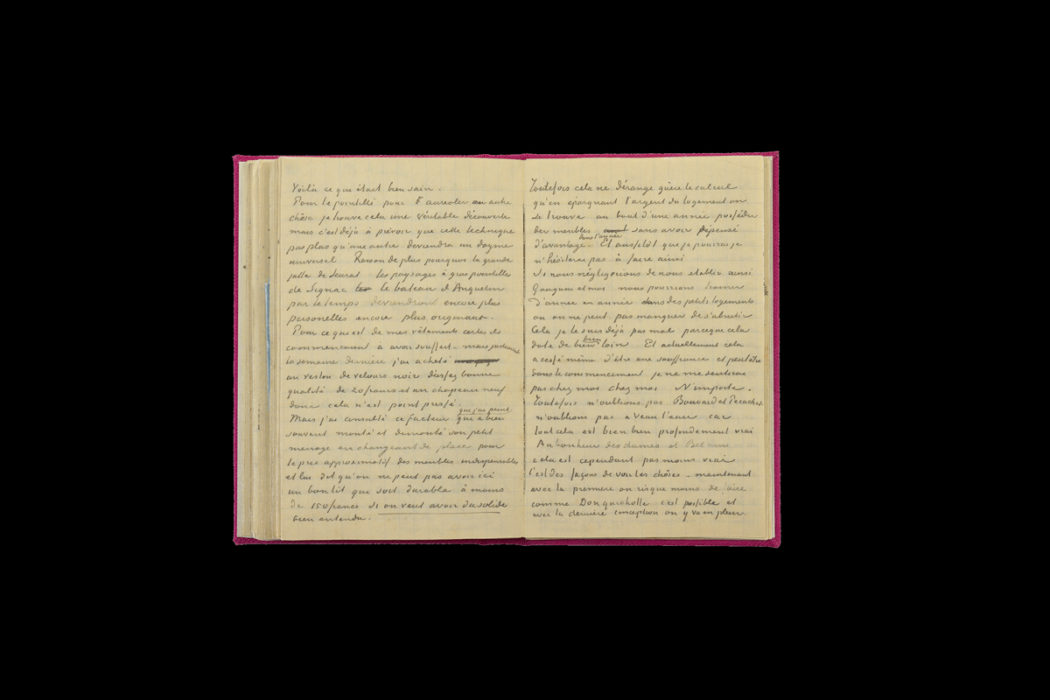 Voilà ce que était bien sain.
Pour le pointillé pour l'aureoler ou autre
chôse je trouve cela une véritable découverte
mais c'est déjà à prévoir que cette technique
pas plus qu'une autre deviendra un dogme
universel Raison de plus pourquoi la grande
jatte de Seurat les paysages à gros pointillés
de Signac le bateau d'Anquetin
par le temps deviendront encore plus
personelles encore plus originaux.
Pour ce qui est de mes vêtements certes ils
commencaient à avoir souffert – mais justement
la semaine dernière j'ai acheté
un veston de velours noir d'assez bonne
qualité de 20 francs et un chapeau neuf
donc cela n'est point pressé.
Mais j'ai consulté ce facteur que j'ai peint que a bien
souvent monté et démonté son petit
menage en changeant de place pour
le prix approximatif des meubles indispensables
et lui dit qu'on ne peut pas avoir ici
un bon lit que soit durable à moins
de 150 francs si on veut avoir du solide
bien entendu.
Toutefois cela ne dérange guère le calcul
qu'en epargnant l'argent du logement on
se trouve au bout d'une année posséder
des meubles sans avoir dépensé
d'avantage dans l'année. Et aussitôt que je pourrai je
n'hésiterai pas à faire ainsi
Si nous négligerions de nous etablir ainsi
Gauguin et moi nous pourrions trainer
d'année en année dans des petits logements
ou on ne peut pas manquer de s'abrutir
Cela je le suis déjà pas mal parceque cela
date de bien bien loin. Et actuellement cela
a cessé même d'être une souffrance et peutêtre
dans le commencement je ne me sentirai
pas chez moi chez moi N'importe.
Toutefois n'oublions pas Bouvard et Pecuchet
n'oublions pas a Veau l'eau car
tout cela est bien bien profondement vrai
Au bonheur des dames et Bel ami
cela est cependant pas moins vrai
C'est des façons de voir les chôses – maintenant
avec la premiere on risque moins de faire
comme Don quichotte c'est possible et
avec la dernière conception on y va en plein